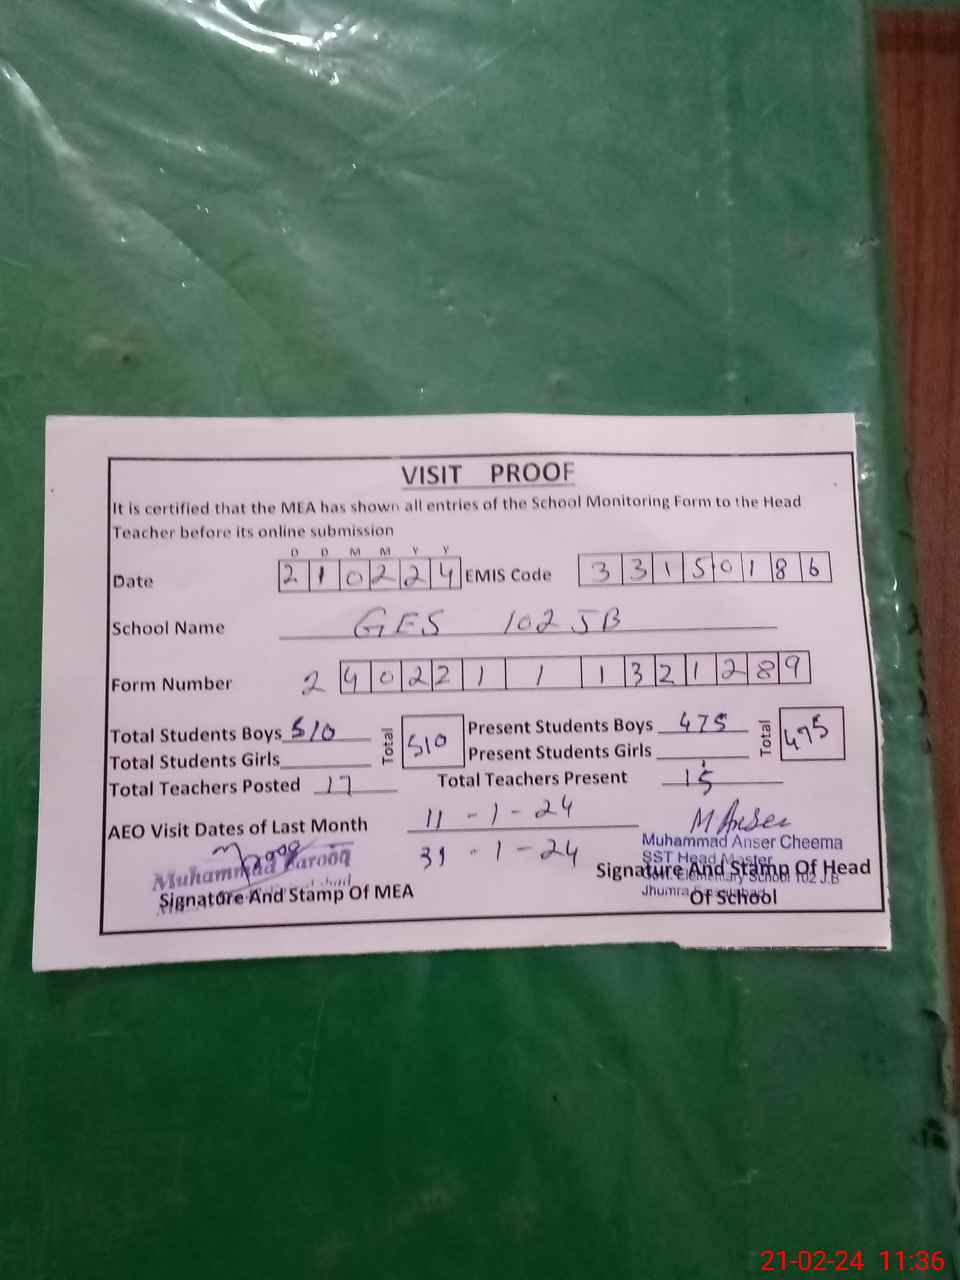 VISIT PROOF
It is certified that the MEA has shown all entries of the School Monitoring Form to the Head
Teacher before its online submission
D D M M Y Y
Date 2 1 0 2 2 4 EMIS Code 3 3 1 5 0 1 8 6
School Name GES 102 JB
Form Number 2 4 0 2 2 1 1 1 3 2 1 2 8 9
Total Students Boys 510 Total 510 Present Students Boys 475 Total 475
Total Students Girls Present Students Girls
Total Teachers Posted 17 Total Teachers Present 15
AEO Visit Dates of Last Month 11 - 1 - 24
31 - 1 - 24
M Anser
Muhammad Anser Cheema
SST Head Master
Govt. Elementary School 102 J.B
Jhumra Faisalabad
Signature And Stamp Of Head
Of School
Muhammad Farooq
Signature And Stamp Of MEA
21-02-24 11:36